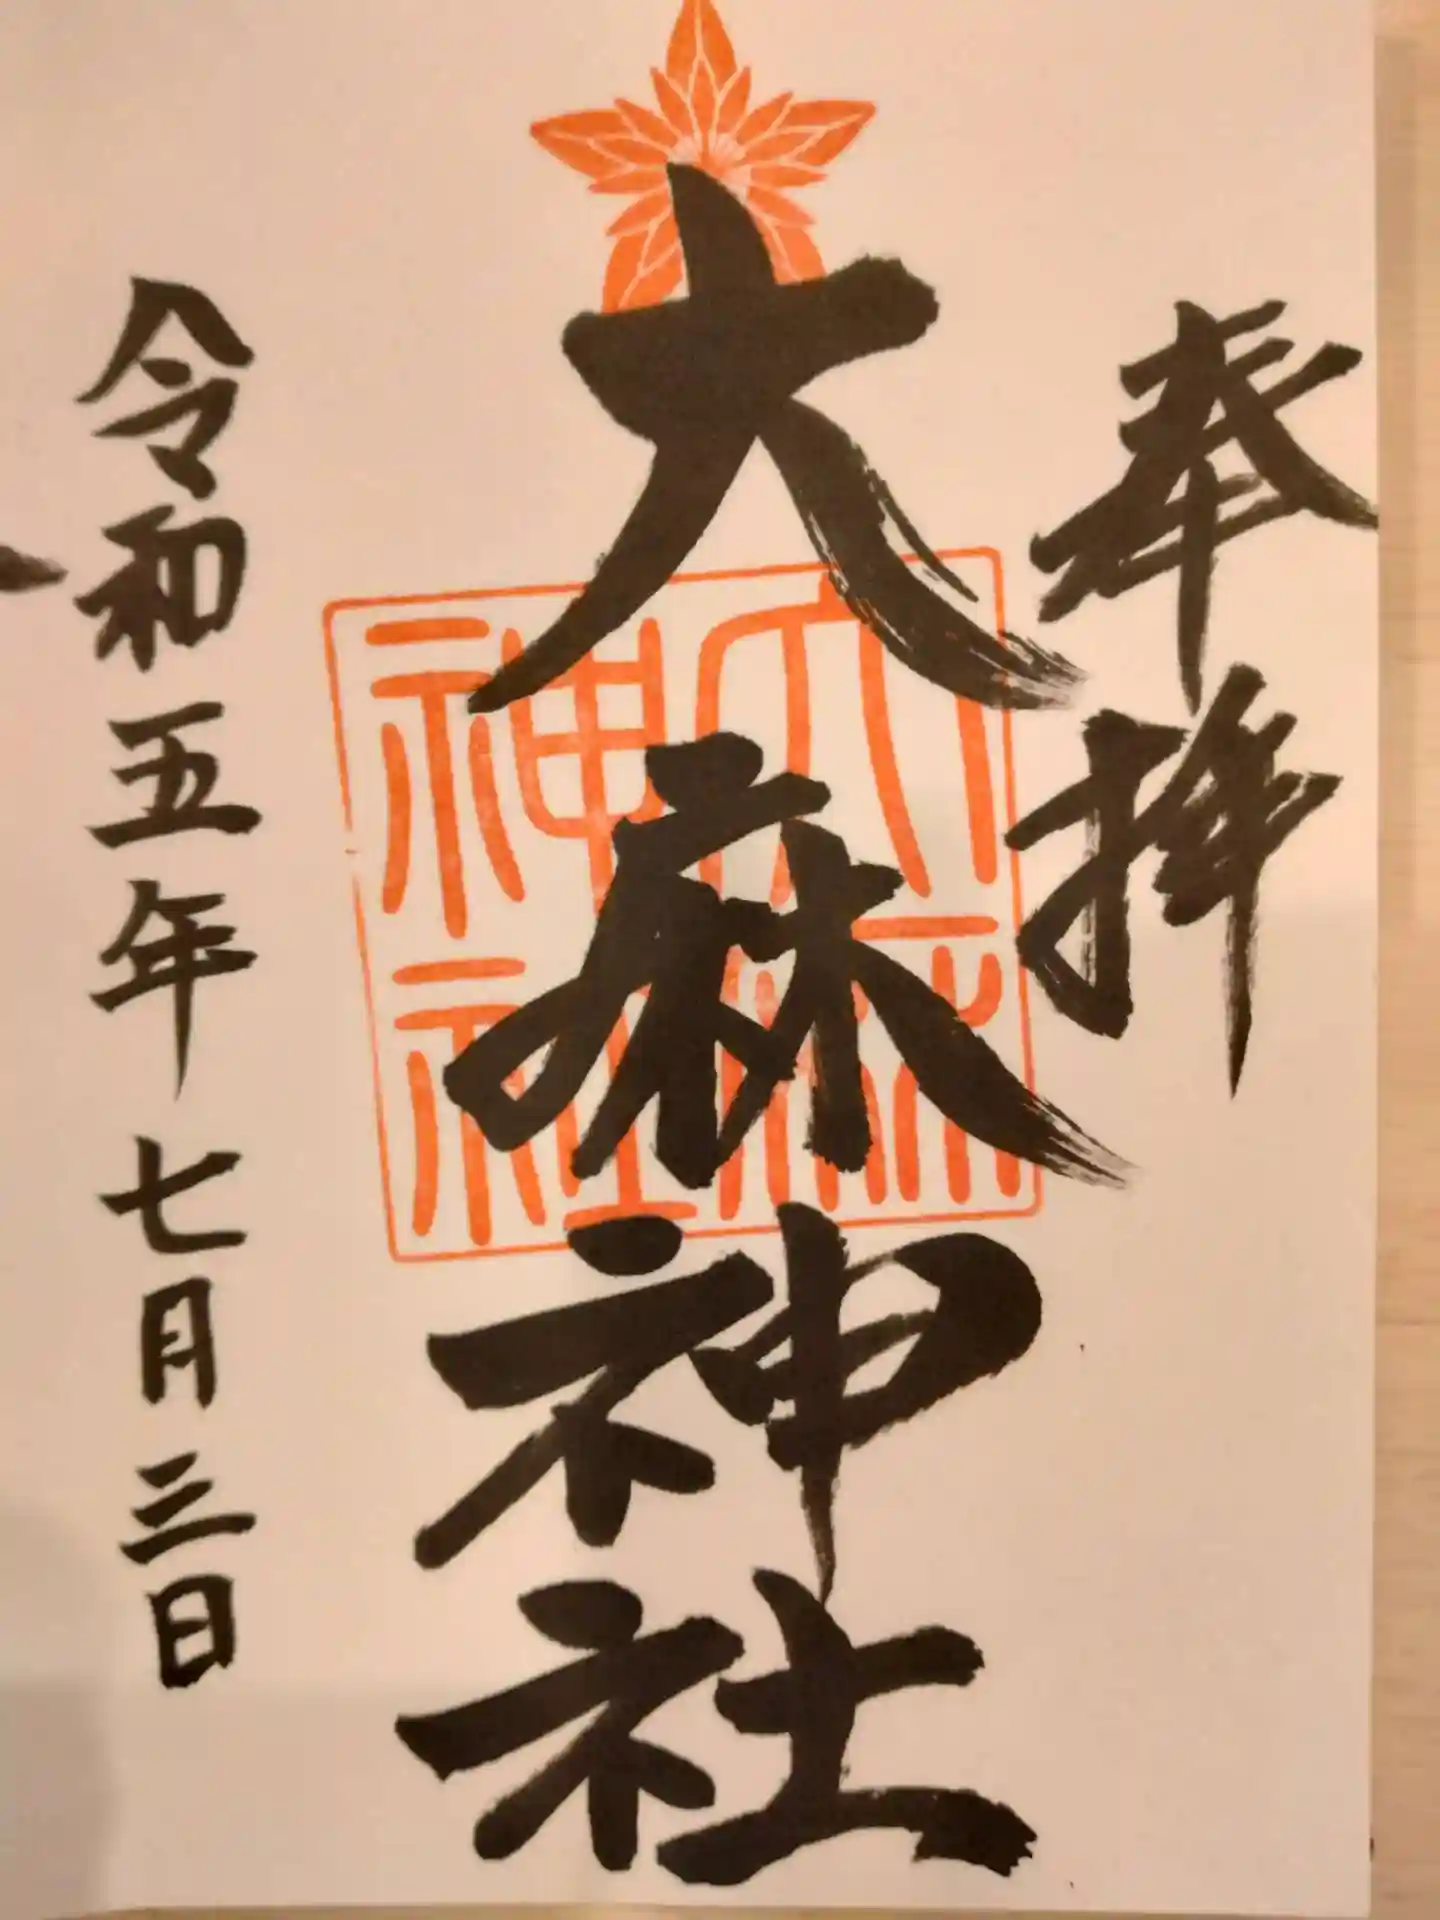 奉拝
大麻神社
大麻神社
令和五年七月三日